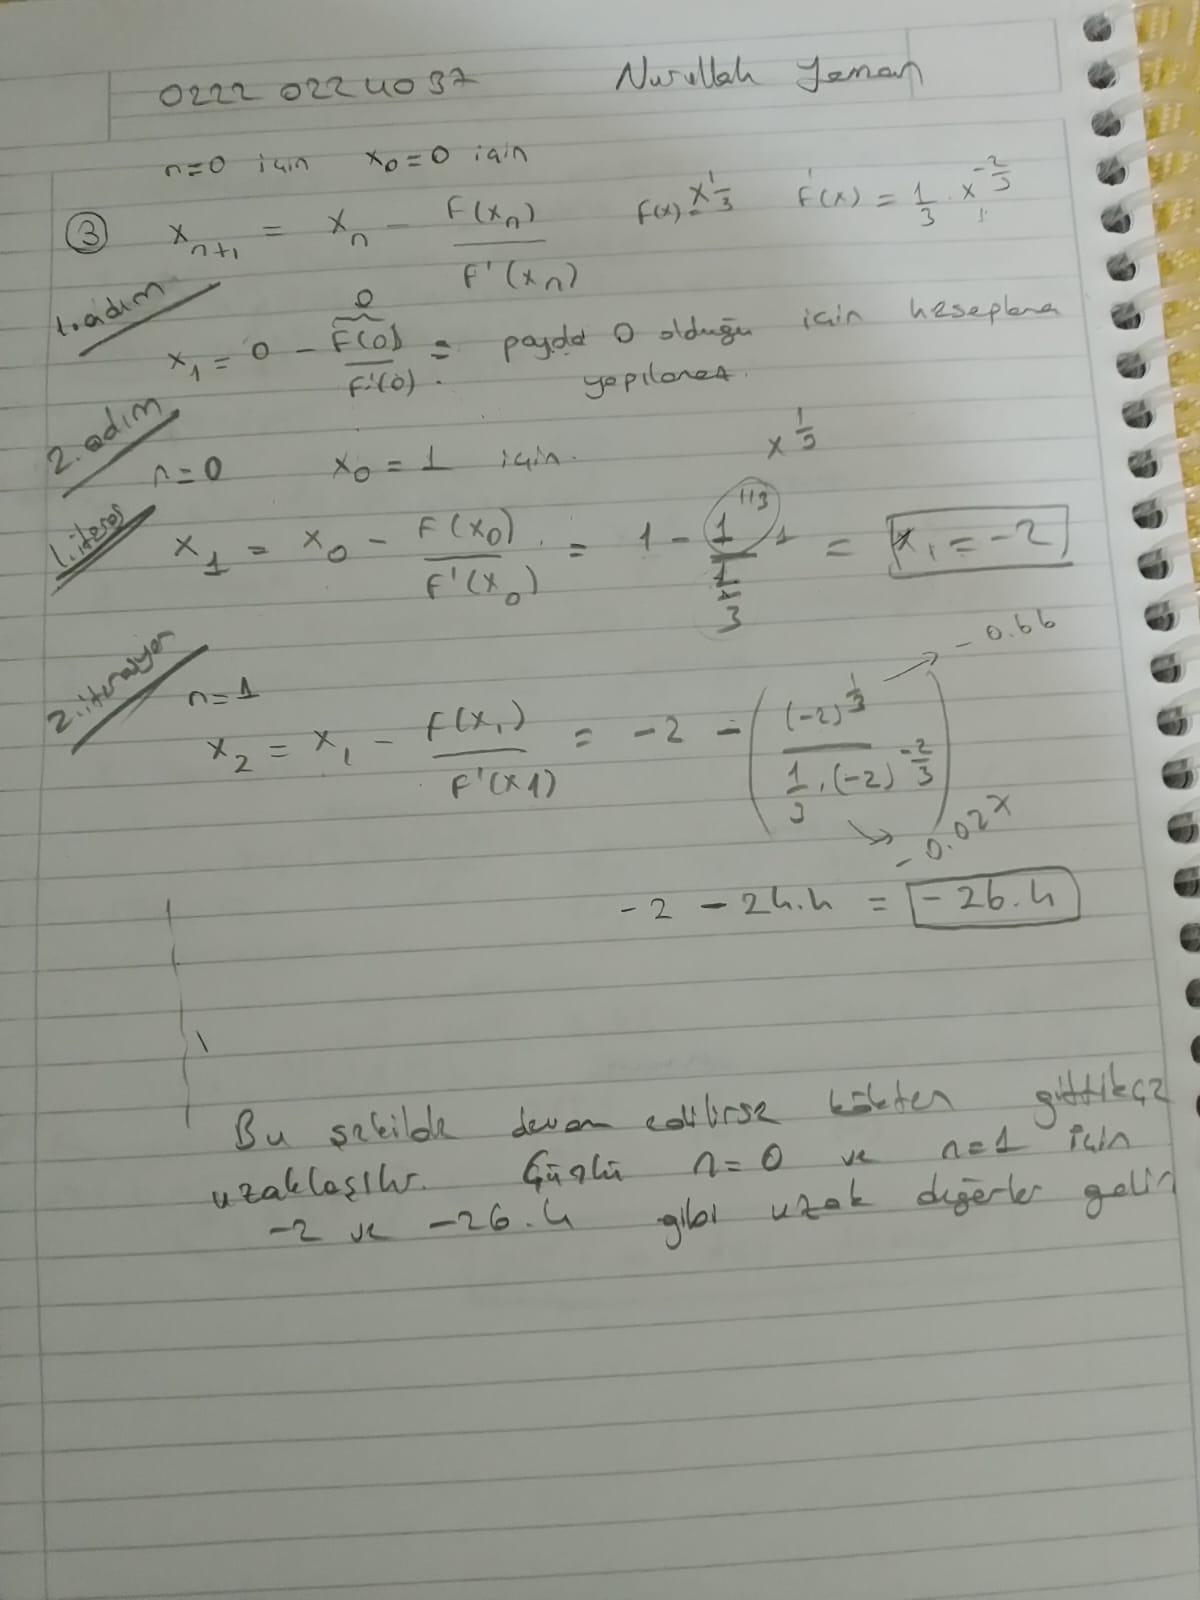 0222 022 40 37 Nurullah Yaman
n=0 için x₀=0 için
③ xₙ₊₁ = xₙ - F(xₙ)/F'(xₙ) F(x)=x^(1/3) F'(x) = 1/3 . x^(-2/3)
1. adım
x₁ = 0 - F(0)/F'(0) = payda 0 olduğu için hesaplama
0
yapılamaz.
2. adım
n=0 x₀ = 1 için. x^(1/3)
x₁ = x₀ - F(x₀)/F'(x₀) = 1 - 1^(1/3)/(1/3) 1 = x₁ = -2
2. iterasyon
n=1
-0.66
x₂ = x₁ - F(x₁)/F'(x1) = -2 - ((-2)^(1/3) / (1/3 . (-2)^(-2/3)))
-2 - 24.4 = -26.4
Bu şekilde devam edilirse kökten gittikçe
uzaklaşılır. Çünkü n=0 ve n=1 için
-2 ve -26.4 gibi uzak değerler gelir